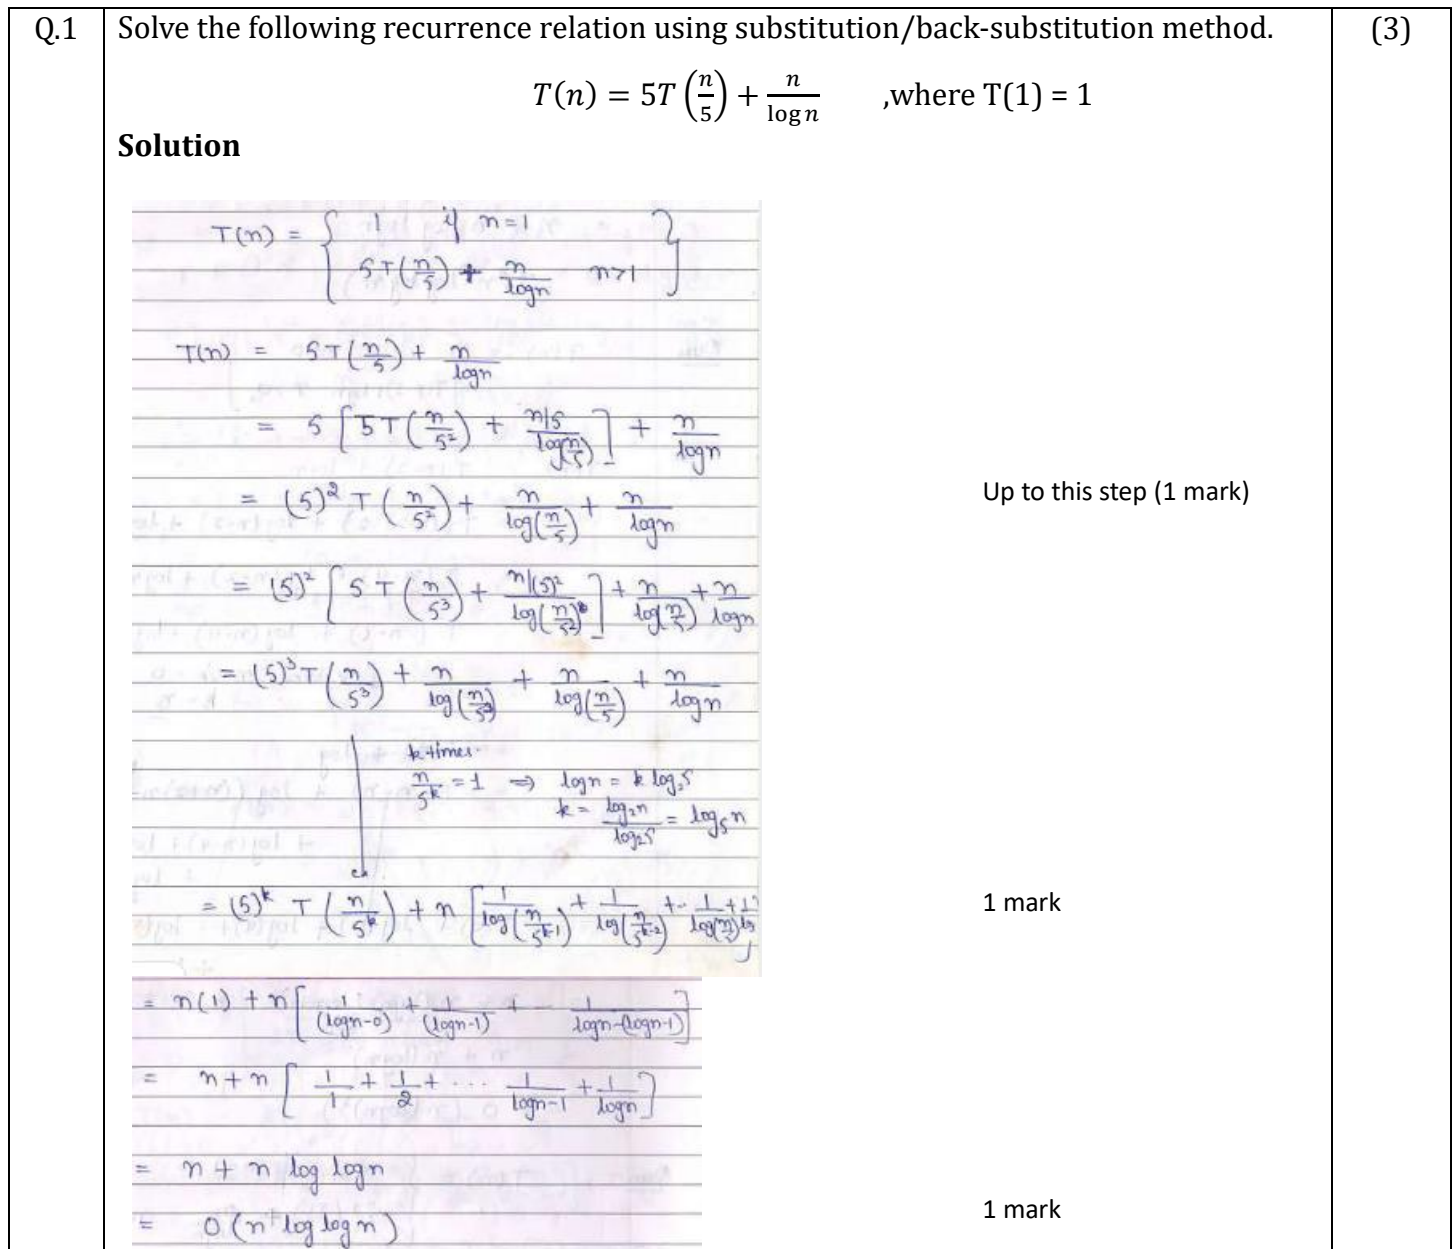 Q.1 Solve the following recurrence relation using substitution/back-substitution method. (3)
T(n) = 5T(n/5) + n/log n ,where T(1) = 1
Solution
T(n) = { 1 if n=1
5T(n/5) + n/logn n>1 }
T(n) = 5T(n/5) + n/logn
= 5[5T(n/5²) + n/5/log(n/5)] + n/logn
= (5)² T(n/5²) + n/log(n/5) + n/logn Up to this step (1 mark)
= (5)² [5T(n/5³) + n/(5)²/log(n/5²)] + n/log(n/5) + n/logn
= (5)³T(n/5³) + n/log(n/5²) + n/log(n/5) + n/logn
k times.
n/5ᵏ = 1 ⇒ logn = k log₂5
k = log₂n/log₂5 = log₅n
= (5)ᵏ T(n/5ᵏ) + n[1/log(n/5ᵏ⁻¹) + 1/log(n/5ᵏ⁻²) + -- 1/log(n/5) + 1/ 1 mark
= n(1) + n[1/(logn-0) + 1/(logn-1) + -- 1/logn-(logn-1)]
= n+n[1/1 + 1/2 + ... 1/logn-1 + 1/logn]
= n + n log logn
= O(n log logn) 1 mark